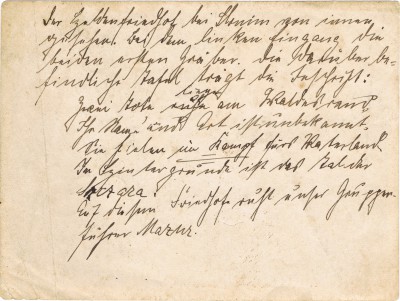 Der Heldenfriedhof bei Slonim von innen
gesehen. Bei dem linken Eingang die
beiden ersten Gräber. Die darüber be-
findliche Tafel trägt die Inschrift:
Zwei Tote liegen am Waldesrand
Ihr Name und Ort ist unbekannt.
Sie fielen im Kampf fürs Vaterland
Im Hintergrunde ist das Tal der
Auf diesem Friedhofe ruht unser Gruppen-
führer Mazur.